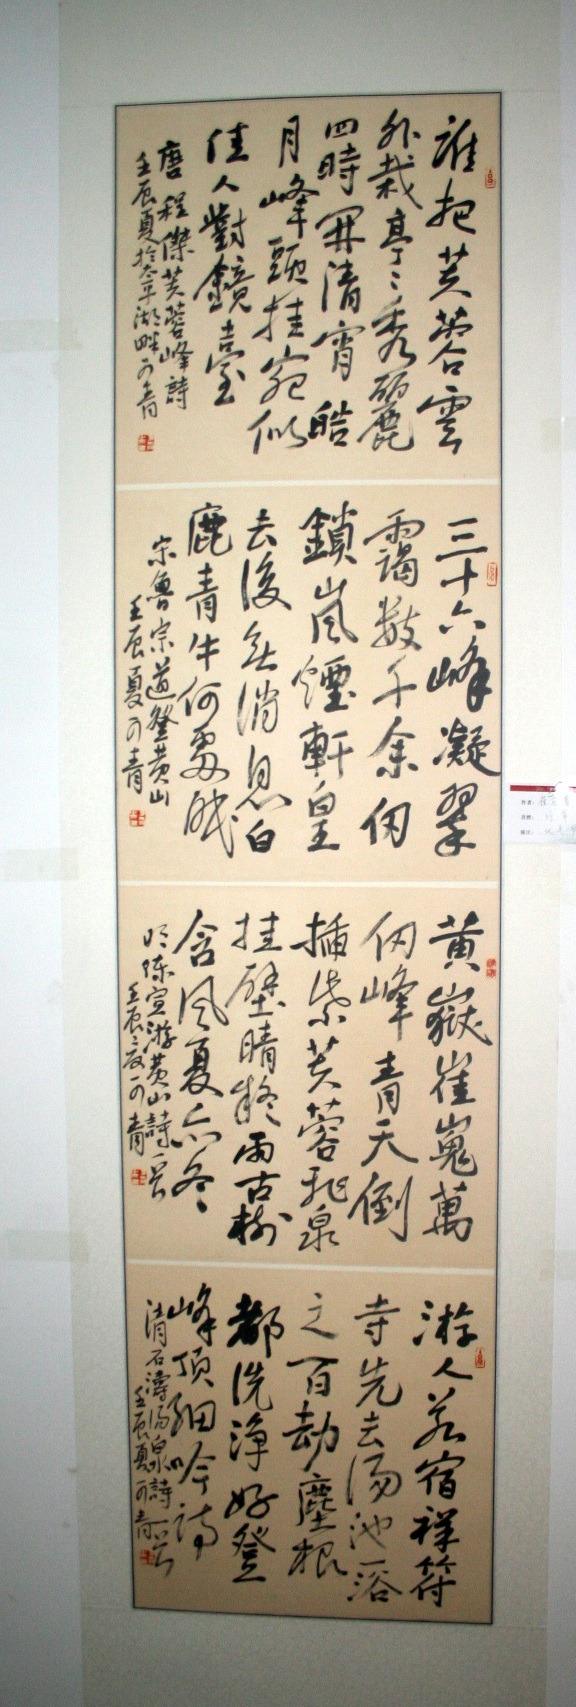 誰把芙蓉雲
外栽亭亭秀麗
四時開清宵皓
月峰頭挂宛似
佳人對鏡臺
唐程傑芙蓉峰詩
壬辰夏於太平湖畔可青
三十六峰凝翠
靄數千余仞
鎖嵐煙軒皇
去後無消息白
鹿青牛何處眠
宗魯宗道登黄山
壬辰夏可青
黄嶽崔嵬萬
仞峰青天倒
插紫芙蓉飛泉
挂壁晴疑雨古樹
含風夏亦冬
明陳宣游黄山詩一首
壬辰夏可青
游人若宿祥符
寺先去湯池一浴
之百劫塵根
都洗淨好登
峰頂細吟詩
清石濤湯泉詩一首
壬辰夏可青
作者: